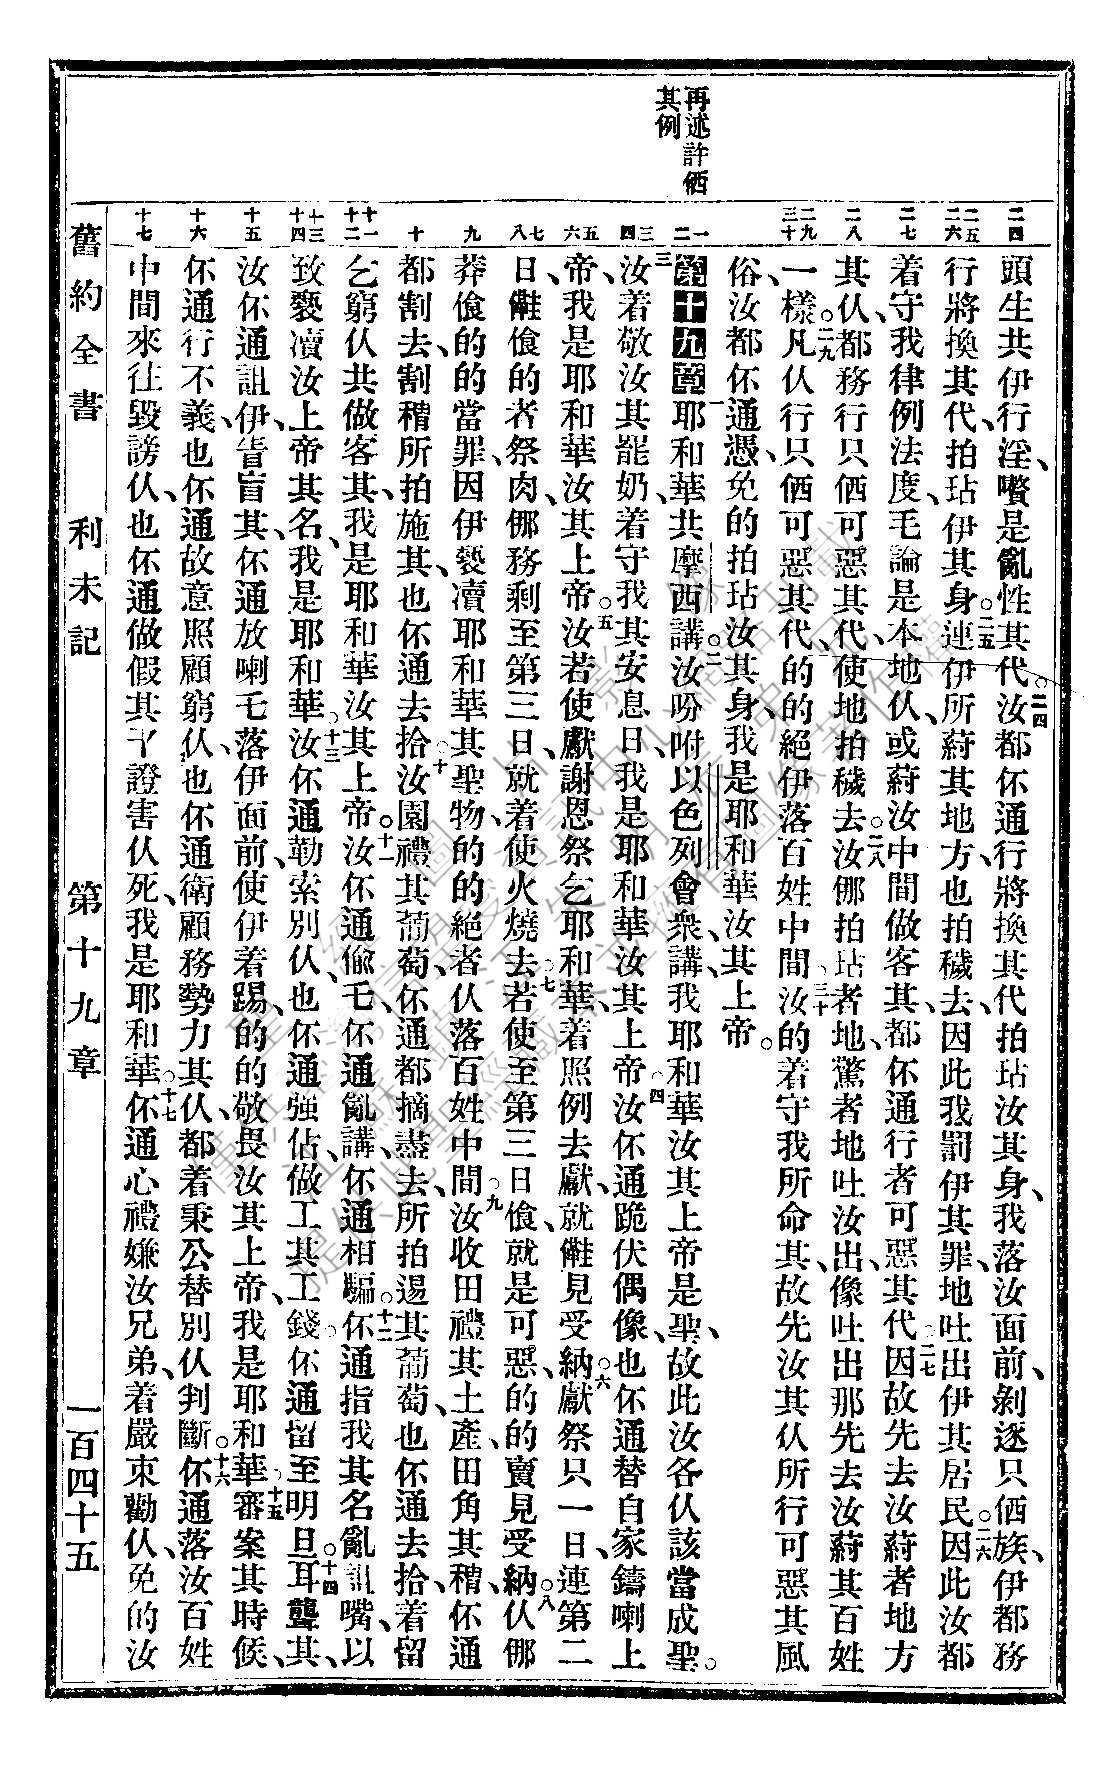 再述許俖
其例
二四
頭生共伊行淫、嚽是亂性其代。○二四汝都伓通行將換其代拍玷汝其身、我落汝面前、剝逐只俖族、伊都務
二五
二六
行將換其代、拍玷伊其身。○二五連伊所蒔其地方也拍穢去、因此我罰伊其罪、地吐出伊其居民。○二六因此汝都
二七
着守我律例法度、毛論是本地仈、或蒔汝中間做客其、都伓通行者可惡其代。○二七因故先去汝蒔者地方
二八
其仈、都務行只俖可惡其代、使地拍穢去。○二八汝㑚拍玷者地、驚者地吐汝出、像吐出那先去汝蒔其百姓
二九
三十
一樣。○二九凡仈行只俖可惡其代、的的絕伊落百姓中間。○三十汝的着守我所命其、故先汝其仈所行可惡其風
俗、汝都伓通憑、免的拍玷汝其身、我是耶和華汝其上帝。
一
二
第十九章 一耶和華共摩西講、○二汝吩咐以色列會衆講、我耶和華汝其上帝是聖、故此汝各仈該當成聖。
三
四
三汝着敬汝其罷奶、着守我其安息日、我是耶和華汝其上帝。○四汝伓通跪伏偶像、也伓通替自家鑄喇上
五
六
帝、我是耶和華汝其上帝。○五汝若使獻謝恩祭乞耶和華、着照例去獻、就㒤見受納。○六獻祭只一日、連第二
七
八
日、㒤飡的者祭肉、㑚務剩至第三日、就着使火燒去。○七若使至第三日飡、就是可惡的、的賣見受納。○八仈㑚
九
莽飡的、的當罪、因伊褻瀆耶和華其聖物、的的絕者仈落百姓中間。○九汝收田禮其土產、田角其穧、伓通
十
都割去、割穧所拍施其、也伓通去拾。○十汝園禮其葡萄、伓通都摘盡去、所拍逿其葡萄、也伓通去拾、着留
十一
十二
乞窮仈共做客其、我是耶和華汝其上帝。○十一汝伓通偸乇、伓通亂講、伓通相騙。○十二伓通指我其名亂詛嘴、以
十三
十四
致褻瀆汝上帝其名、我是耶和華。○十三汝伓通勒索別仈、也伓通強佔、做工其工錢、伓通留至明旦。○十四耳聾其、
十五
汝伓通詛伊、眚盲其、伓通放喇乇落伊面前、使伊着踢、的的敬畏汝其上帝、我是耶和華。○十五審案其時候、
十六
伓通行不義、也伓通故意照顧窮仈、也伓通衛顧務勢力其仈、都着秉公替別仈判斷。○十六伓通落汝百姓
十七
中間來往毀謗仈、也伓通做假其干證害仈死、我是耶和華。○十七伓通心禮嫌汝兄弟、着嚴束勸仈、免的汝
舊約全書 利未記 第十九章 一百四十五